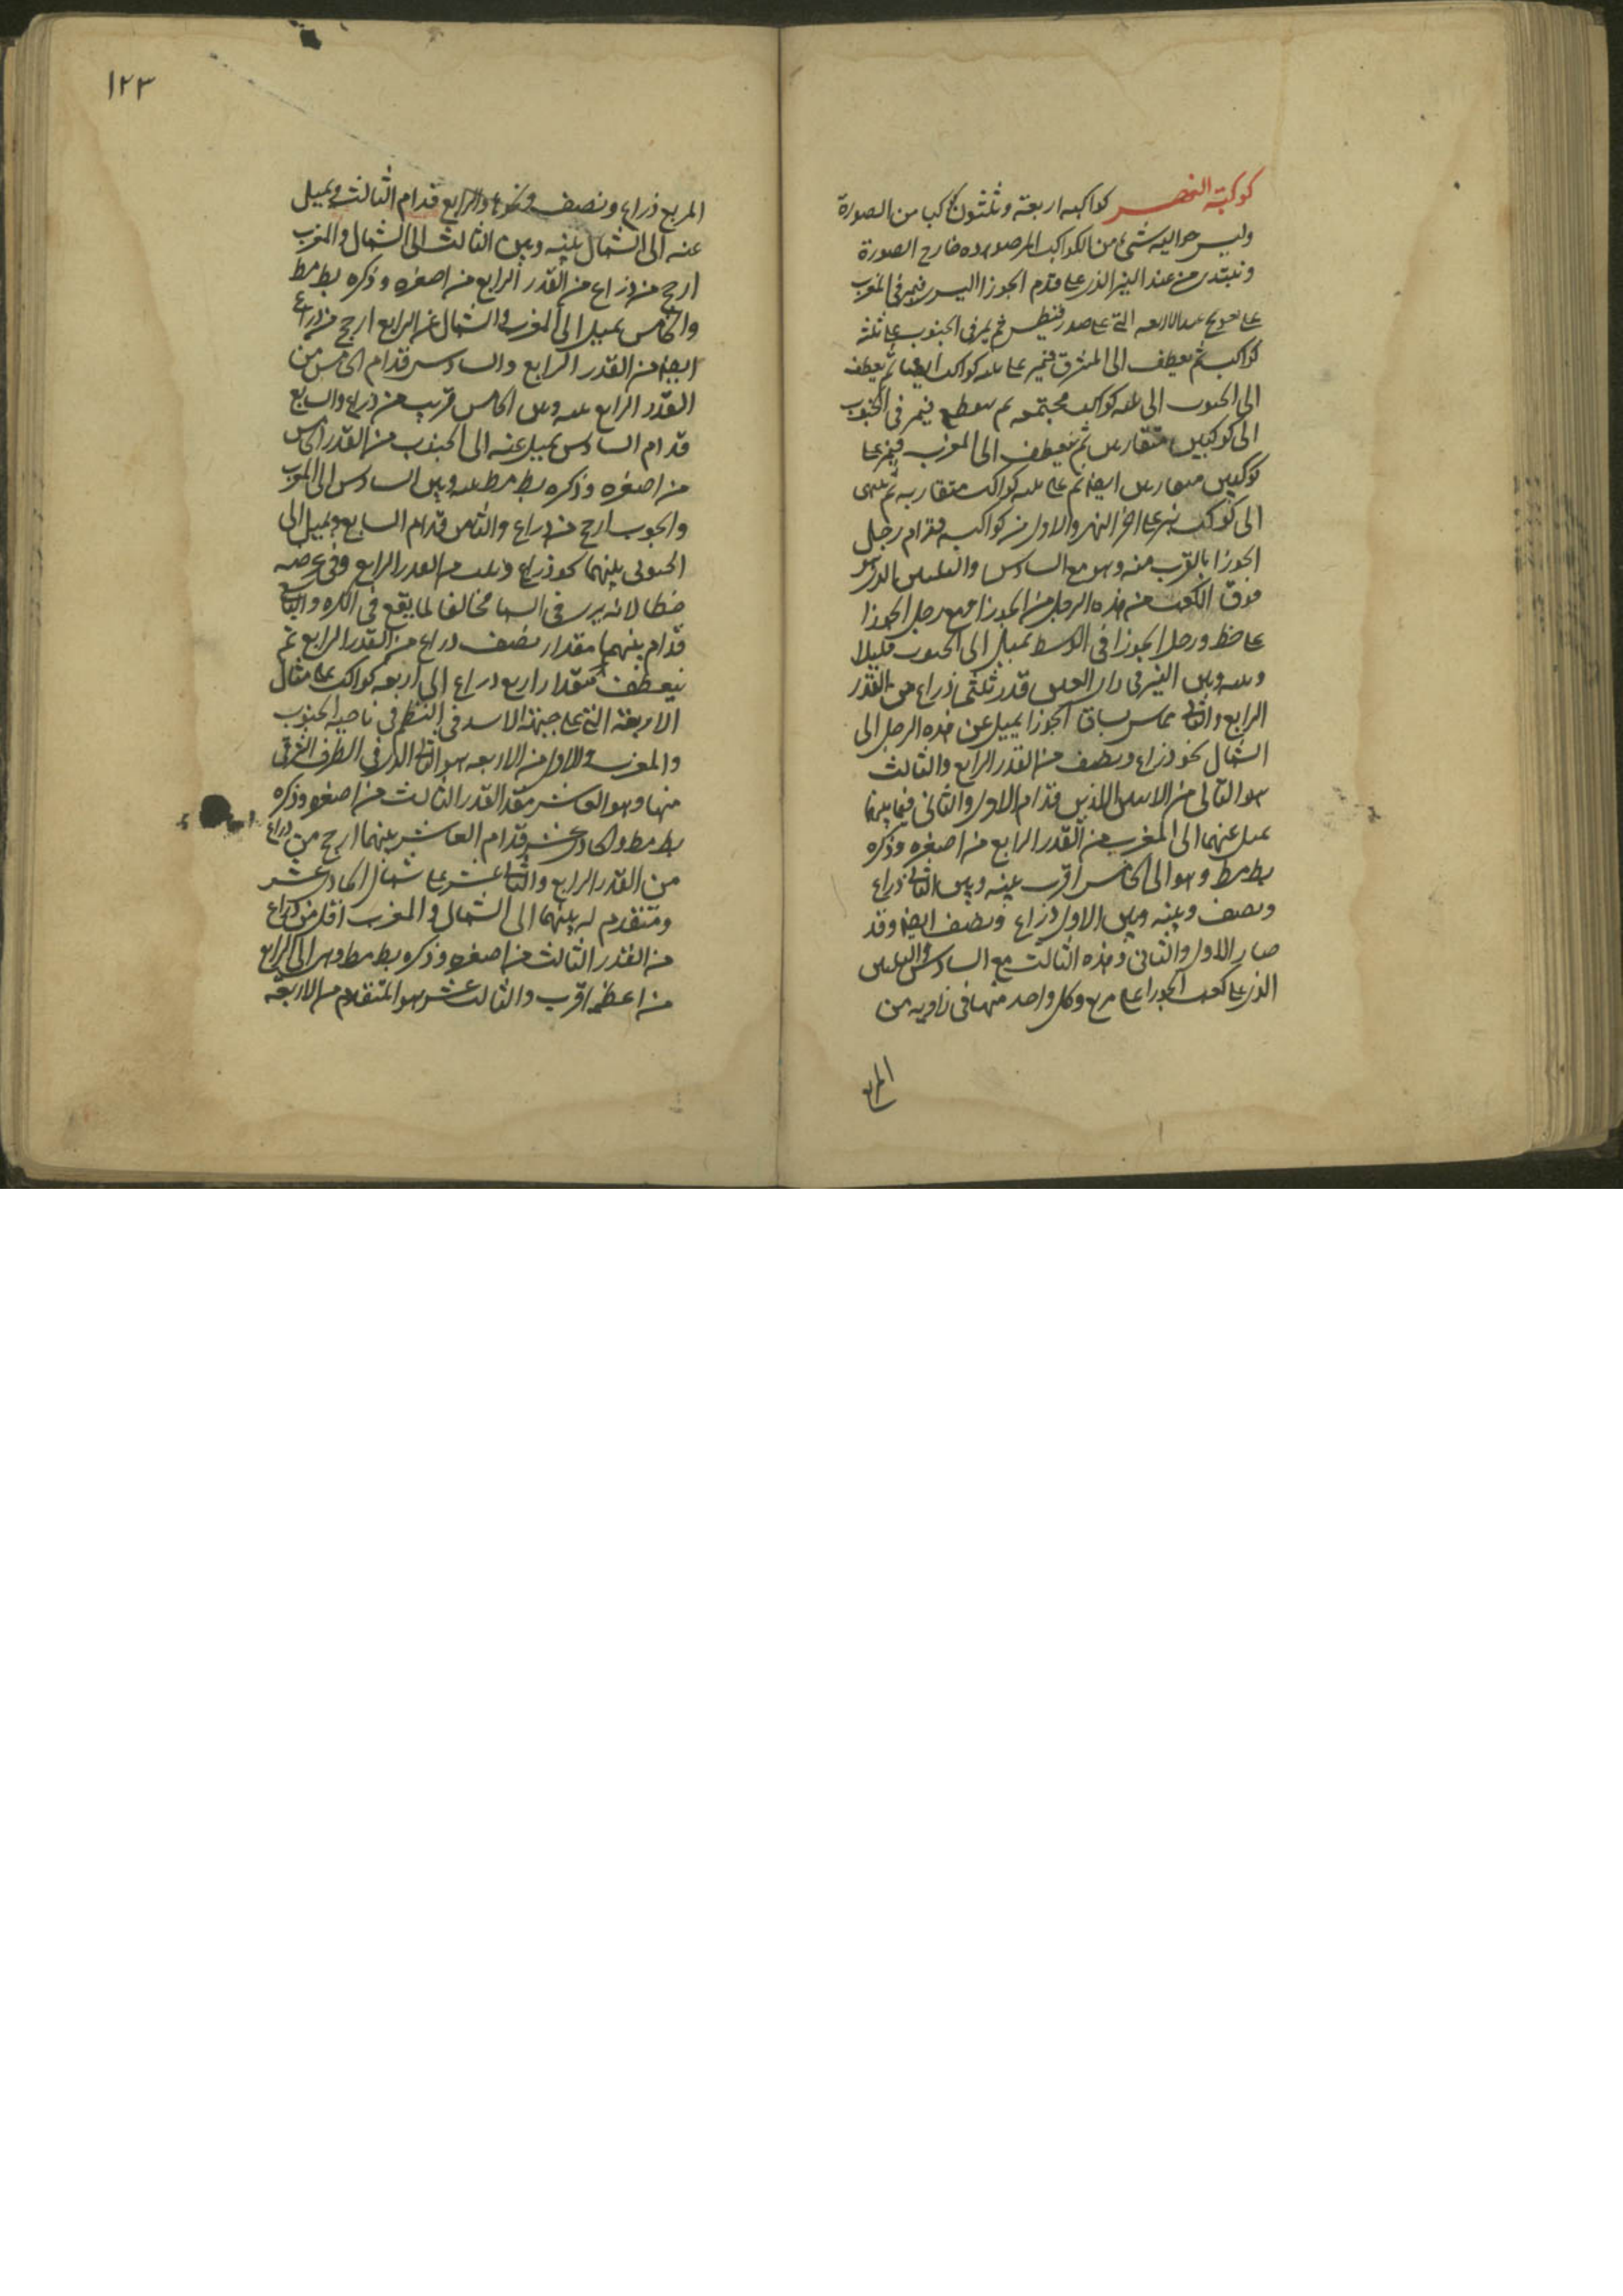 كوكبة النهر كواكبه اربعة وثلثون كوكبا من الصورة
وليس حواليه شئ من الكواكب المرصوده خارج الصورة
ويبتدى من عند النير الذى على قدم الجوزا اليسرى فيمر فى المغرب
على الاربعه التى على صدر قيطس ثم يمر فى الجنوب على ثلثة
كواكب ثم ينعطف الى المشرق فيمر على ثلثه كواكب ايضا ثم ينعطف
الى الجنوب الى ثلثه كواكب مجتمعه ثم ينعطف فيمر فى الجنوب
الى كوكبين متقاربين ثم ينعطف الى المغرب فيمر على
كوكبين متقاربين ايضا ثم على ثلثه كواكب متقاربه ثم ينتهى
الى كوكب نير على اخر النهر والاول من كواكبه قدام رجل
الجوزا بالقرب منه وهو مع السادس والثلثين الذى هو
فوق الكعب من هذه الرجل من الجوزا ومع رجل الجوزا
على خط ورجل الجوزا فى الوسط يميل الى الجنوب قليلا
وبينه وبين النير فى راى العين قدر ثلثى ذراع من القدر
الرابع والثانى يماس ساق الجوزا يميل عن هذه الرجل الى
الشمال نحو ذراع ونصف من القدر الرابع والثالث
هو التالى من الاثنين اللذين قدام الاول والثانى فيما بينهما
يميل عنهما الى المغرب من القدر الرابع من اصغره وذكره
بطلميوس وهو الى الخامس اقرب بينه وبين الثانى ذراع
ونصف وبينه وبين الاول ذراع ونصف ايضا وقد
صار الاول والثانى وهذه الثالث مع السادس والثلثين
الذى على كعب الجوزا على مربع وكل واحد منها فى زاوية من
المربع
١٢٣
المربع ذراع ونصف ونحوها والرابع قدام الثالث ويميل
عنه الى الشمال بينه وبين الثالث الى الشمال والمغرب
ارجح من ذراع من القدر الرابع من اصغره وذكره بطلميوس
والخامس يميل الى المغرب والشمال عن الرابع ارجح من ذراع
ايضا من القدر الرابع والسادس قدام الخامس من
القدر الرابع بينه وبين الخامس قريب من ذراع والسابع
قدام السادس يميل عنه الى الجنوب من القدر الخامس
من اصغره وذكره بطلميوس بينه وبين السادس الى المغرب
والجنوب ارجح من ذراع والثامن قدام السابع ويميل الى
الجنوب بينهما نحو ذراع وثلث من القدر الرابع وفى عرضه
خطا لانه يرى فى السما مخالفا لما يقع فى الكره والتاسع
قدام بينهما مقدار نصف ذراع من القدر الرابع ثم
ينعطف مقدار اربع ذراع الى اربعه كواكب على مثال
الاربعة التى على جبهة الاسد فى النظم فى ناحية الجنوب
والمغرب والاول من الاربعه هو التالى الذى فى الطرف الشرقى
منها وهو العاشر من القدر الثالث من اصغره وذكره
بطلميوس والحادى عشر قدام العاشر بينهما ارجح من ذراع
من القدر الرابع والثانى عشر على شمال الحادى عشر
ومتقدم له بينهما الى الشمال والمغرب اقل من ذراع
من القدر الثالث من اصغره وذكره بطلميوس وهو الى الرابع
من اعظمه اقرب والثالث عشر هو المتقدم من الاربعة